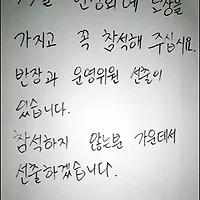 가지고 꼭 참석해 주십시요.
반장과 운영위원 선출이
있습니다.
참석하지 않는분 가운데서
선출하겠습니다.